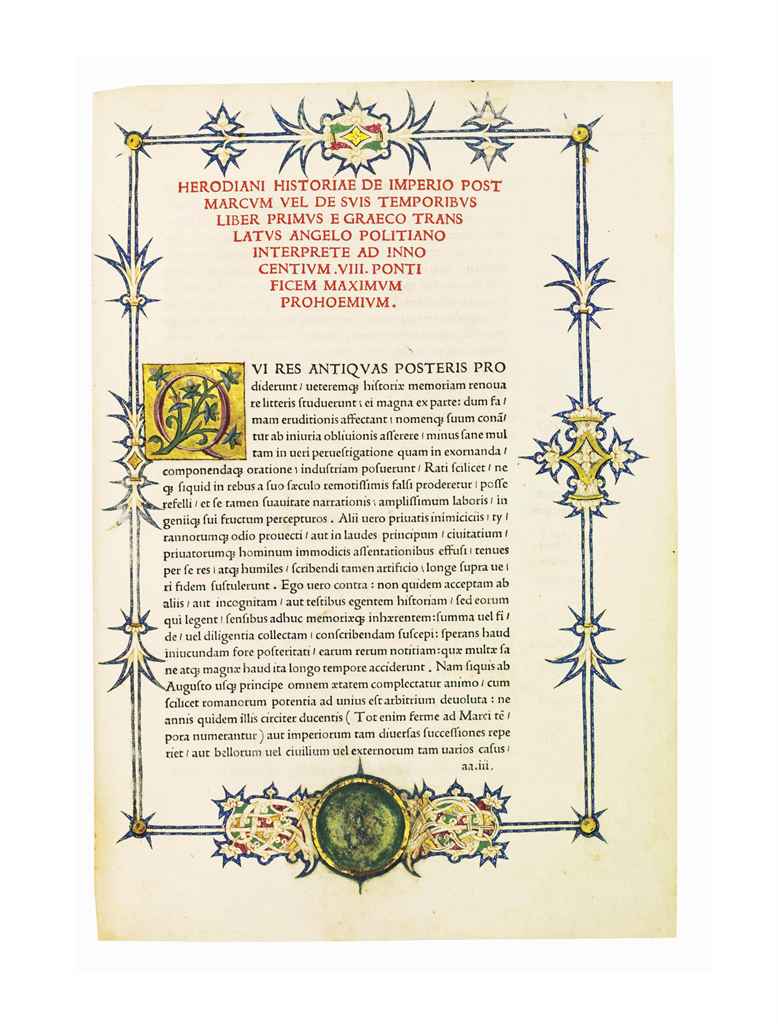 HERODIANI HISTORIAE DE IMPERIO POST
MARCVM VEL DE SVIS TEMPORIBVS
LIBER PRIMVS E GRAECO TRANS
LATVS ANGELO POLITIANO
INTERPRETE AD INNO
CENTIVM .VIII. PONTI
FICEM MAXIMVM
PROHOEMIVM.
QVI RES ANTIQVAS POSTERIS PRO
diderunt / ueteremqꝫ historiæ memoriam renoua
re litteris studuerunt: ei magna ex parte: dum fa/
mam eruditionis affectant: nomenqꝫ suum conā/
tur ab iniuria obliuionis asserere / minus sane mul
tam in ueri peruestigatione quam in exornanda /
componendaqꝫ oratione: industriam posuerunt / Rati scilicet / ne
qꝫ siquid in rebus a suo sæculo remotissimis falsi proderetur / posse
refelli / et se tamen suauitate narrationis: amplissimum laboris / in
geniiqꝫ sui fructum percepturos . Alii uero priuatis inimiciciis / ty/
rannorumqꝫ odio prouecti / aut in laudes principum / ciuitatium /
priuatorumqꝫ hominum immodicis assentationibus effusi: tenues
per se res / atqꝫ humiles / scribendi tamen artificio: longe supra ue /
ri fidem sustulerunt . Ego uero contra : non quidem acceptam ab
aliis / aut incognitam / aut testibus egentem historiam / sed eorum
qui legent / sensibus adhuc memoriæqꝫ inhærentem: summa uel fi/
de / uel diligentia collectam / conscribendam suscepi: sperans haud
iniucundam fore posteritati / earum rerum notitiam: quæ multæ sa
ne atqꝫ magnæ haud ita longo tempore acciderunt . Nam siquis ab
Augusto usqꝫ principe omnem ætatem complectatur animo / cum
scilicet romanorum potentia ad unius est arbitrium deuoluta : ne
annis quidem illis circiter ducentis ( Tot enim ferme ad Marci tē/
pora numerantur ) aut imperiorum tam diuersas successiones repe
riet / aut bellorum uel ciuilium uel externorum tam uarios casus /
aa.iii.